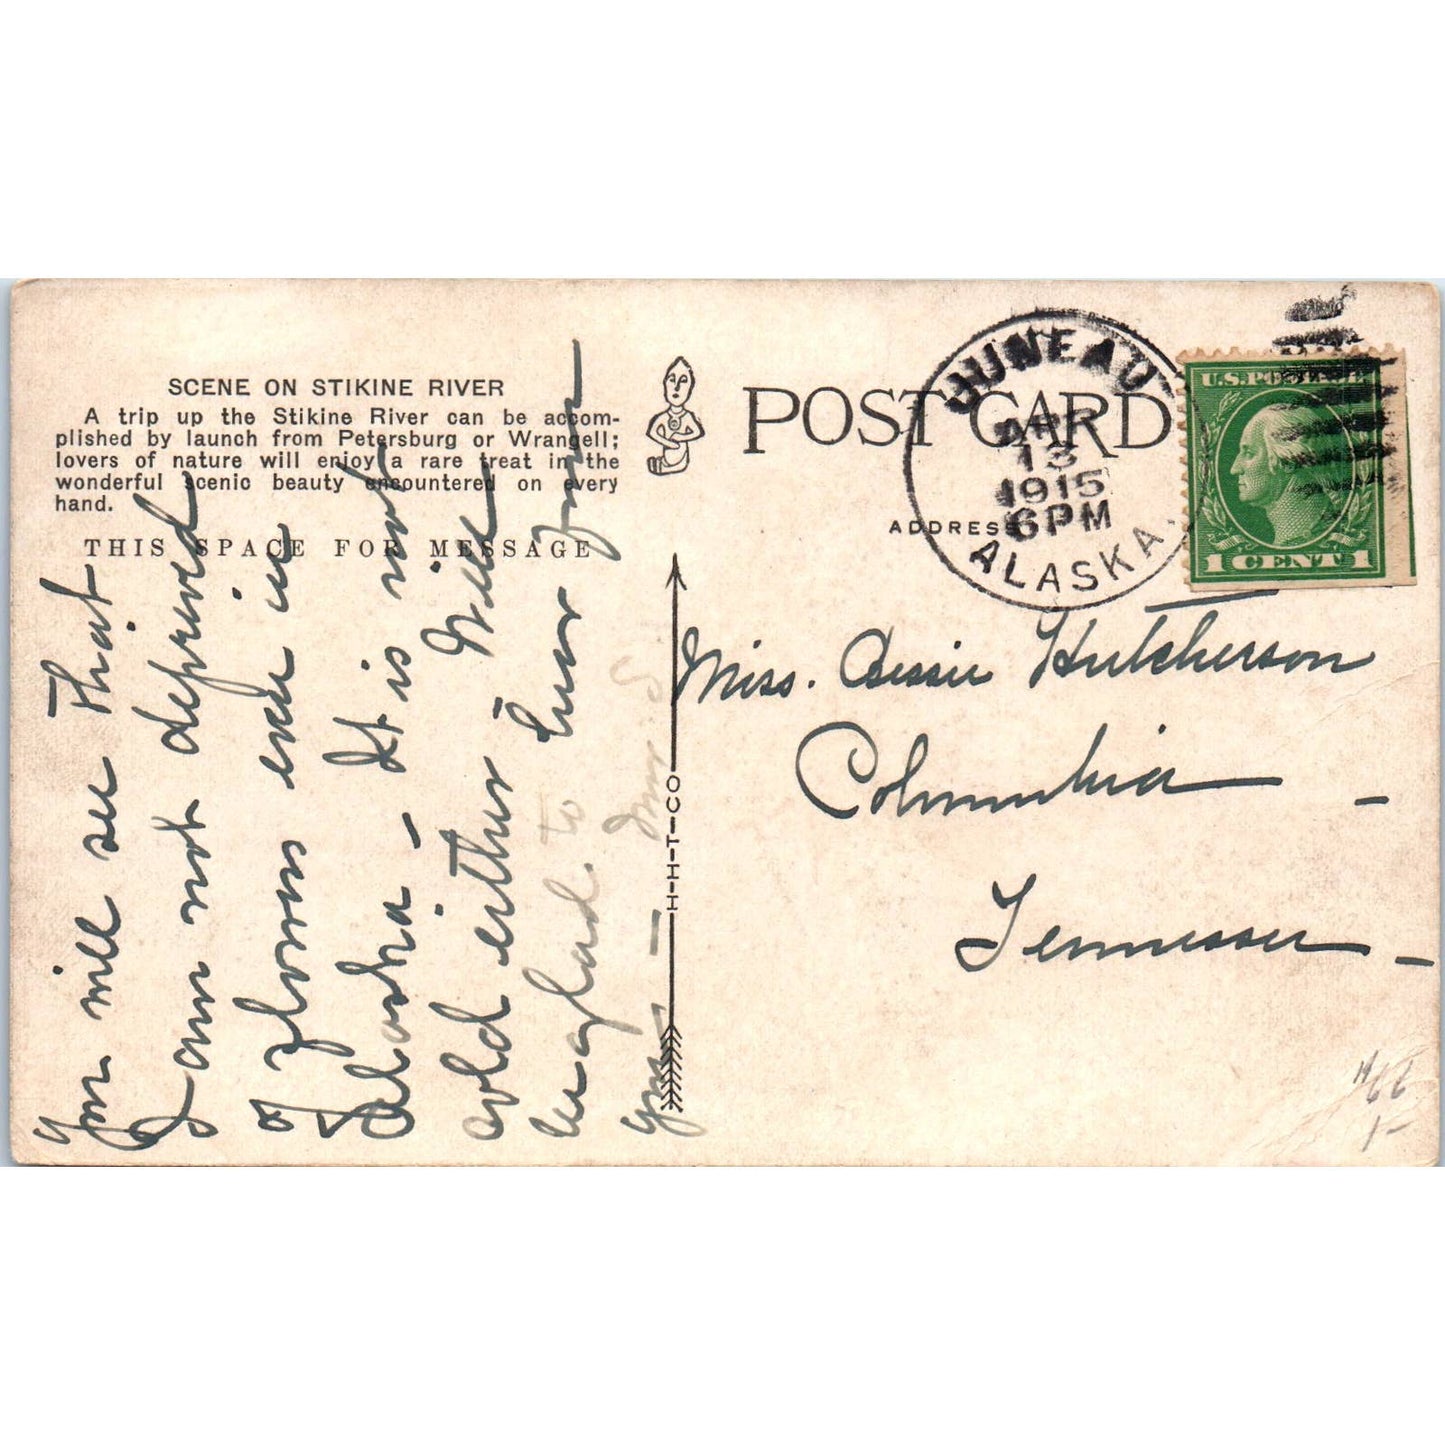 SCENE ON STIKINE RIVER
A trip up the Stikine River can be accom-
plished by launch from Petersburg or Wrangell;
lovers of nature will enjoy a rare treat in the
wonderful scenic beauty encountered on every
hand.
THIS SPACE FOR MESSAGE
You will see that
I am not deprived
of flowers even in
Alaska – It is not
cold either Will
be glad to hear from
you –
H-H-T-CO
POST CARD
ADDRESS
JUNEAU
APR
13
1915
6PM
ALASKA.
U.S. POSTAGE
1 CENT 1
Miss. Bessie Hutcherson
Columbia –
Tennessee –
1–